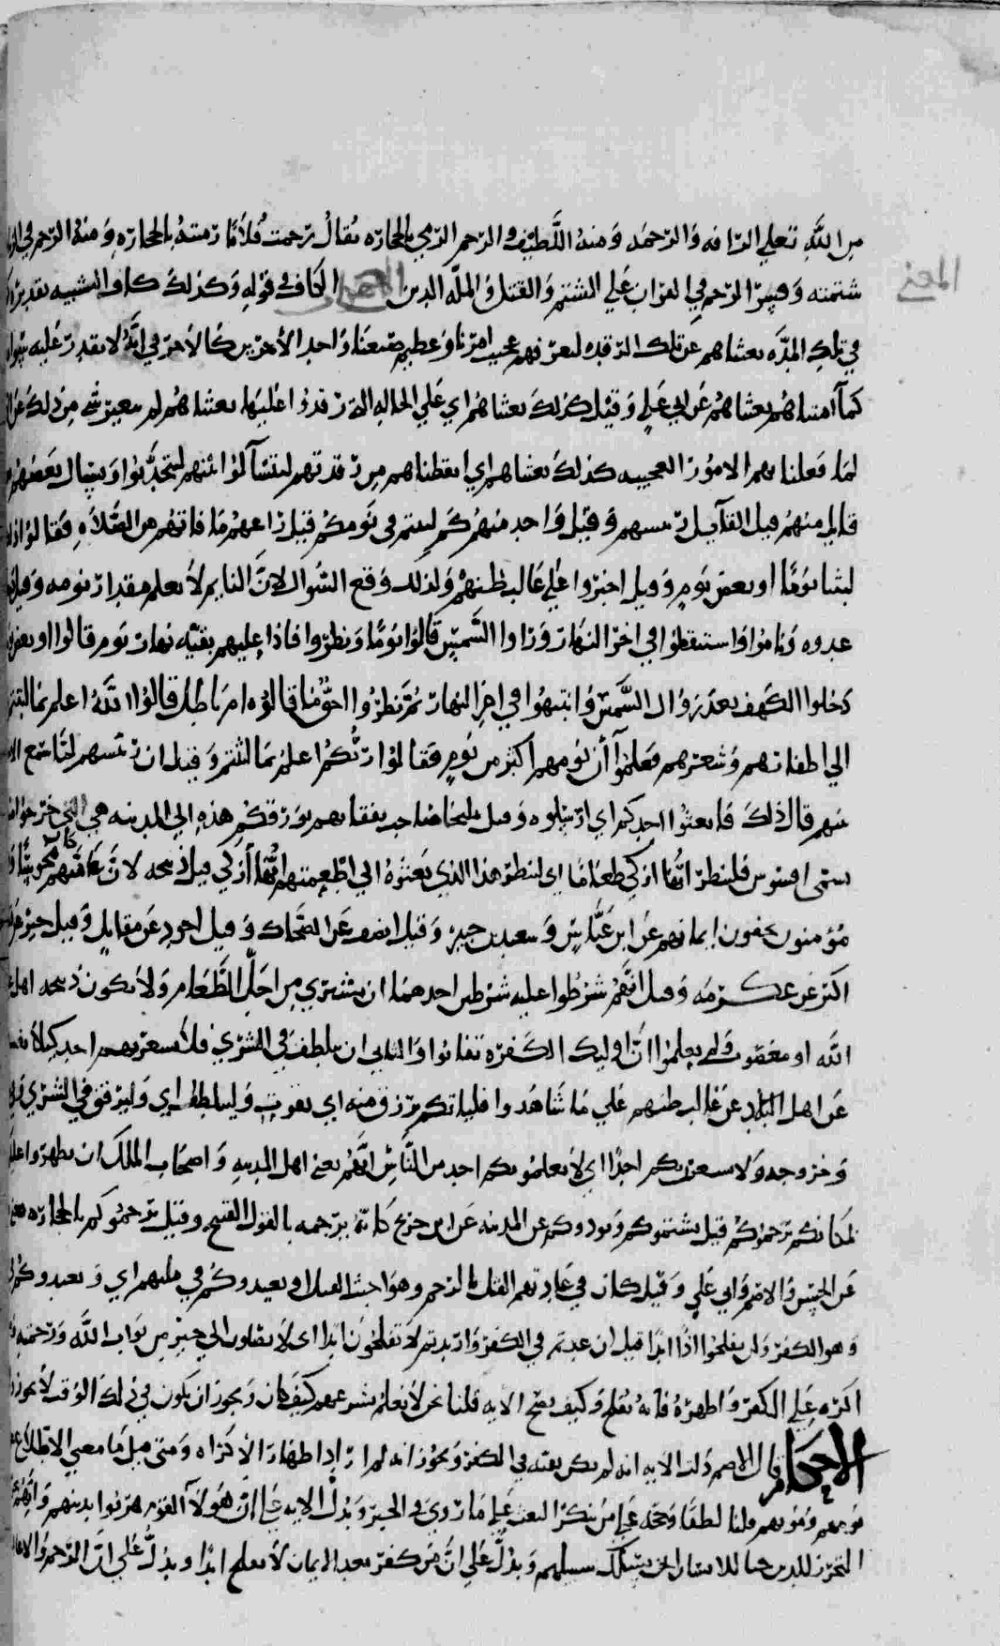 من الله تعلى الرافه والرحمه ومنه اللطيف والرجم الرمي بالحجاره يقال رجمت فلانا رميته بالحجاره ومنه الرجم في
شتمته وفسر الرجم في القران على الشتم والقتل والمله الدين المعنى الكاف في قوله وكذلك كاف التشبيه تقديره
في تلك المده بعثناهم عن تلك الرقده ليعرفهم عجيب امرنا وعظيم صنعنا واحد الاخرين كالاخر في انه لا يقدر عليه
كما امتناهم بعثناهم عن ابي علي وقيل كذلك بعثناهم اي على الحاله التي رقدوا عليها بعثناهم لم يتغير شي من ذلك عن
لما فعلنا بهم الامور العجيبه كذلك بعثناهم اي ايقظناهم من رقدتهم ليتسآلوا بينهم ليتحدثوا ويسال بعضهم
قايل منهم قيل القآيل رئيسهم وقيل واحد منهم كم لبثتم في نومكم قيل راعهم ما فاتهم من الصلاه فقالوا
لبثنا يوما او بعض يوم وقيل اخبروا على غالب ظنهم ولذلك وقع السوال لان النايم لا يعلم مقدار نومه وقيل
غدوه وناموا واستيقظوا في اخر النهار وراوا الشمس قالوا يوما ونظروا فاذا عليهم بقيه نهار يوم قالوا او بعض
دخلوا الكهف بعد زوال الشمس وانتبهوا في اخر النهار ثم نظروا الحق ما قالوه ام باطل قالوا الله اعلم بما
الى اطفارهم وشعرهم فعلموا أن نومهم اكثر من يوم فقالوا ربكم اعلم بما لبثتم وقيل ان رئيسهم لما سمع
منهم قال ذلك فابعثوا احدكم اي ارسلوه وقيل مليخا صاحب نفقاتهم بورقكم هذه الى المدينه هي التي خرجوا
تسمى افسوس فلينظر ايها ازكى طعاما اي لينظر هذا الذي يبعثوه الى اطعمتهم ايها أزكى قيل ذبيحه لان عامتهم كانت مجوسا
مؤمنون يخفون ايمانهم عن ابن عباس وسعيد بن جبير وقيل اطهر عن الضحاك وقيل اجود عن مقاتل وقيل خير
اكثر عن عكرمه وقيل انهم شرطوا عليه شرطين احدهما ان يشتري من احل الطعام ولا يكون ذبيحه اهل
الله او مغصوب ولم يعلموا ان اوليك الكفره تفانوا والثاني ان يلطف في الشري فلا يشعر بهم احد كيلا
عن اهل البلد عن غالب ظنهم على ما شاهدوا فلياتكم برزق منه اي بقوت وليتلطف اي وليرفق في الشري
وخروجه ولا يشعرن بكم احدا اي لا يعلمن بكم احد من الناس انهم يعني اهل المدينه واصحاب الملك ان يظهروا
لمكانكم يرجموكم قيل يشتموكم ويوذوكم عن المدينه عن ابن جريج كانه يرجمه بالقول القبيح وقيل يرجموكم بالحجاره
عن الحسن والاصم وابي علي وقيل كان في عادتهم القتل بالرجم وهو اخبث القتل او يعيدوكم في ملتهم اي
وهو الكفر ولن يفلحوا اذا ابدا قيل ان عدتم في الكفر واريدتم لا تفلحون ابدا اي لا تصلون الى خير من ثواب الله ورحمته
اكره على الكفر واظهره فانه يفلح وكيف يصح الايه قلنا نحن لا نعلم شرعهم كيف كان ويجوز ان يكون في ذلك الوقت لا يجوز
الاحكام قال الاصم دلت الايه انه لم يكن بقيه في الكفر ويجوز انه لم اراد اظهار الاكراه ومتى قيل ما معنى الاطلاع
نومهم وموتهم قلنا لطفا وحجه على من ينكر البعث على ما روي في الخبر وتدل الايه على ان هولآ القوم هربوا بدينهم
التحرز للدين حثا للانسان لمن يسلك سبيلهم ويدل على ان من كفر بعد الايمان لا يفلح ابدا ويدل على ان الرجم